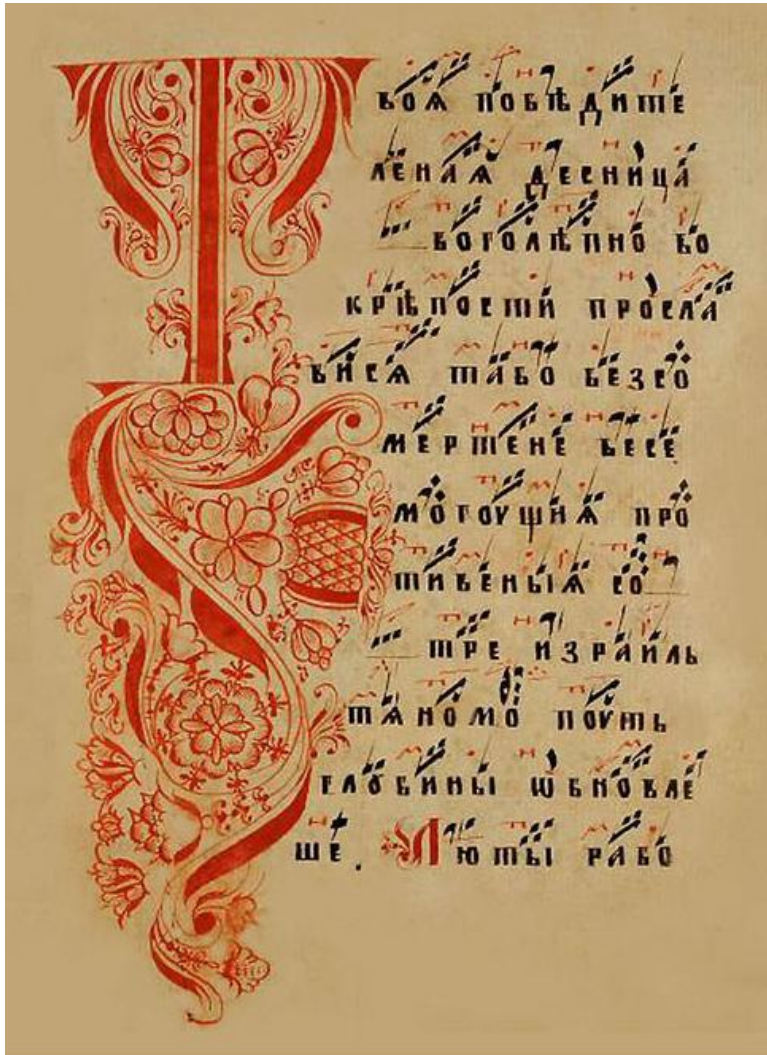 ТВОѦ ПОБѢДИТЕ
ЛЕНАѦ ДЕСНИЦА
БОГОЛѢПНО ВО
КРѢПОСТИ ПРОСЛА
ВИСѦ ТАБО БЕЗСО
МЕРТЕНЕ ВЕСЕ
МОГОУЩИѦ ПРО
ТИВЕНЫѦ СО
ТРЕ ИЗРАИЛЬ
ТѦНОМО ПОУТЬ
ГЛОБИНЫ ѠБНОВЛЕ
ШЕ. ЛЮТЫ РАБО